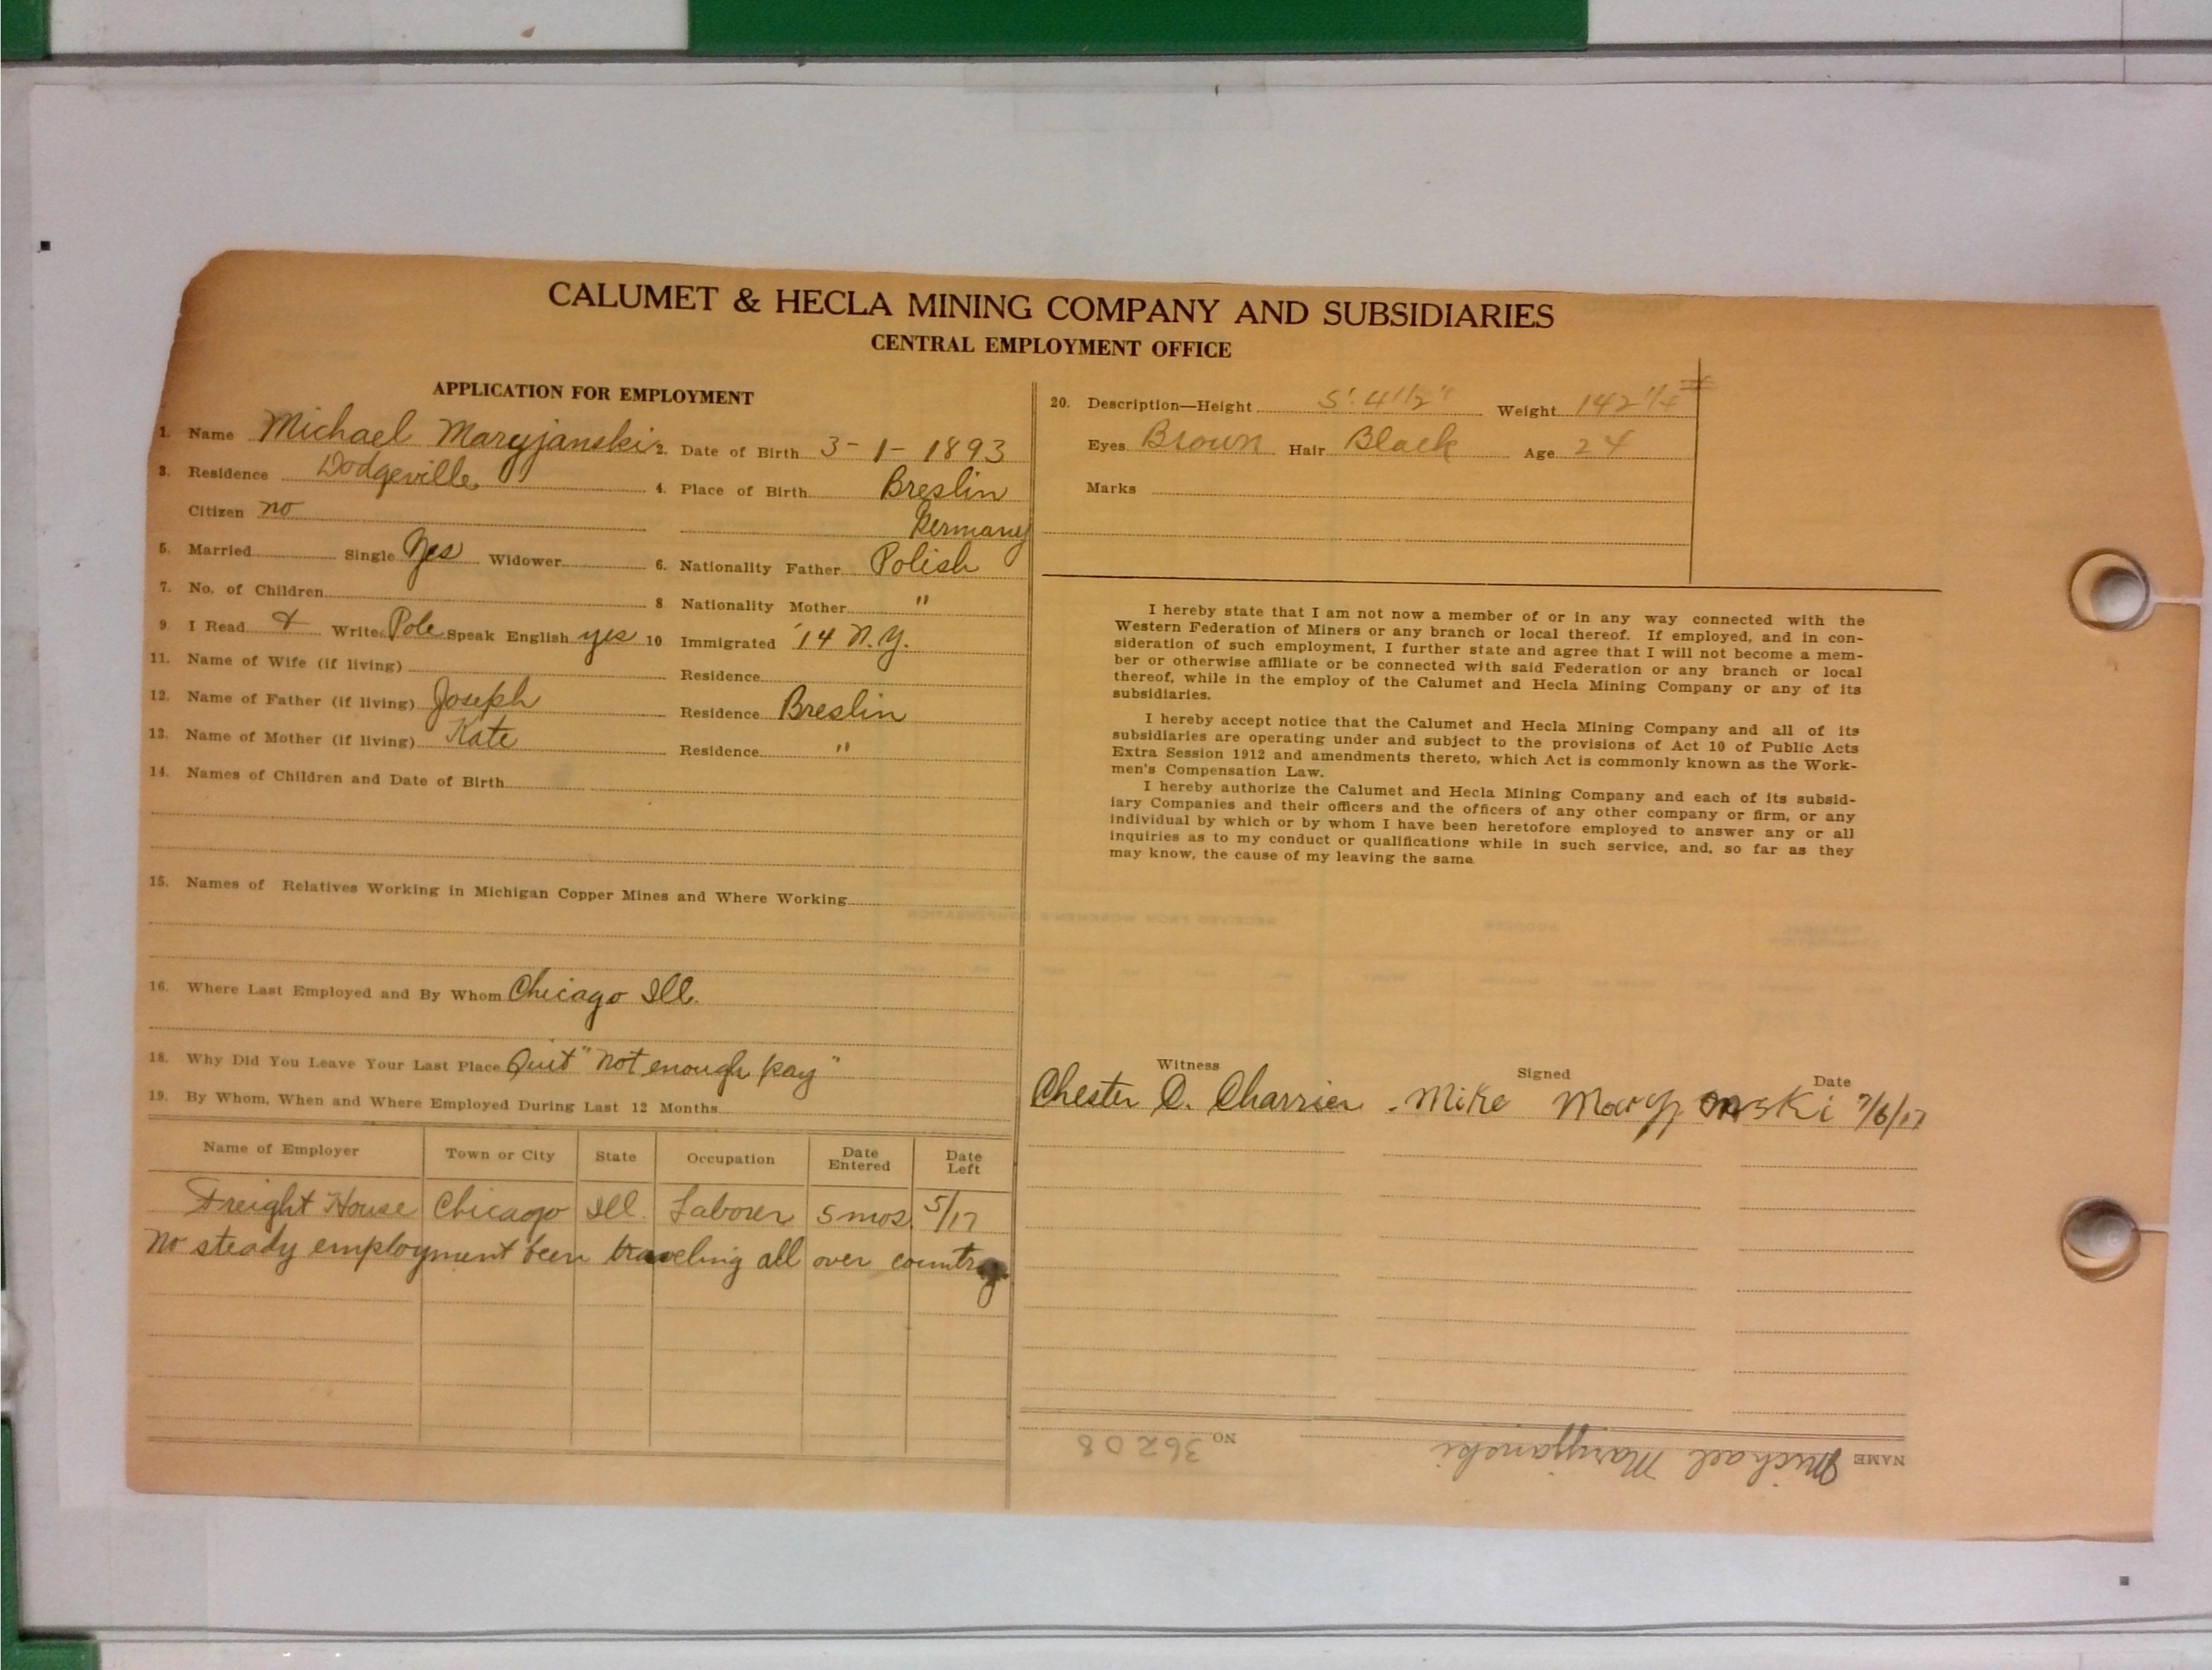 CALUMET & HECLA MINING COMPANY AND SUBSIDIARIES
CENTRAL EMPLOYMENT OFFICE
APPLICATION FOR EMPLOYMENT
1. Name Michael Maryjanski 2. Date of Birth 3-1-1893
3. Residence Dodgeville 4. Place of Birth Breslin
Citizen no Germany
5. Married Single Yes Widower 6. Nationality Father Polish
7. No. of Children 8 Nationality Mother "
9. I Read & Write Pole Speak English yes 10 Immigrated '14 N.Y.
11. Name of Wife (if living) Residence
12. Name of Father (if living) Joseph Residence Breslin
13. Name of Mother (if living) Kate Residence "
14. Names of Children and Date of Birth
15. Names of Relatives Working in Michigan Copper Mines and Where Working
16. Where Last Employed and By Whom Chicago Ill.
18. Why Did You Leave Your Last Place Quit "not enough pay"
19. By Whom, When and Where Employed During Last 12 Months
Name of Employer Town or City State Occupation Date Entered Date Left
Freight House Chicago Ill. Laborer 5 mos. 5/17
No steady employment been traveling all over country
20. Description—Height 5' 4 1/2" Weight 142 1/4 #
Eyes Brown Hair Black Age 24
Marks
I hereby state that I am not now a member of or in any way connected with the
Western Federation of Miners or any branch or local thereof. If employed, and in con-
sideration of such employment, I further state and agree that I will not become a mem-
ber or otherwise affiliate or be connected with said Federation or any branch or local
thereof, while in the employ of the Calumet and Hecla Mining Company or any of its
subsidiaries.
I hereby accept notice that the Calumet and Hecla Mining Company and all of its
subsidiaries are operating under and subject to the provisions of Act 10 of Public Acts
Extra Session 1912 and amendments thereto, which Act is commonly known as the Work-
men's Compensation Law.
I hereby authorize the Calumet and Hecla Mining Company and each of its subsid-
iary Companies and their officers and the officers of any other company or firm, or any
individual by which or by whom I have been heretofore employed to answer any or all
inquiries as to my conduct or qualifications while in such service, and, so far as they
may know, the cause of my leaving the same
Witness Signed Date
Chester C. Charrier Mike 7/6/17
NAME Michael Maryjanski NO. 36208